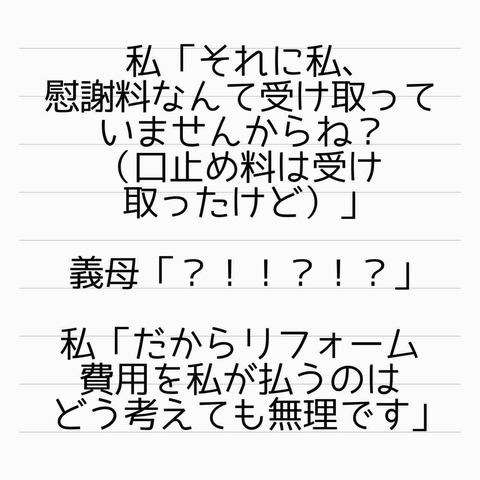 私「それに私、
慰謝料なんて受け取って
いませんからね？
（口止め料は受け
取ったけど）」
義母「？！！？！？」
私「だからリフォーム
費用を私が払うのは
どう考えても無理です」